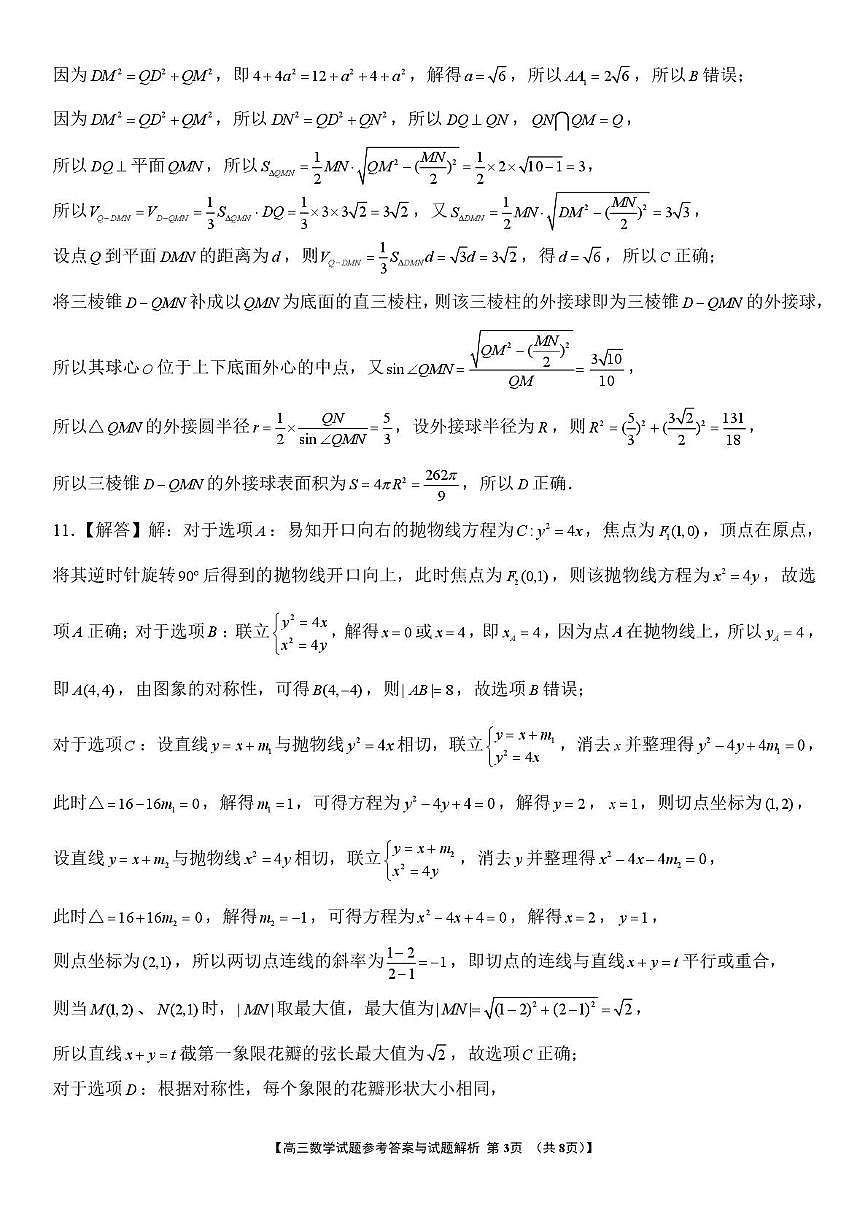 因为 DM² = QD² + QM²，即 4 + 4a² = 12 + a² + 4 + a²，解得 a = √6，所以 AA₁ = 2√6，所以 B 错误；
因为 DM² = QD² + QM²，所以 DN² = QD² + QN²，所以 DQ ⊥ QN，QN⋂QM = Q，
所以 DQ ⊥ 平面 QMN，所以 S_{△QMN} = \frac{1}{2}MN·\sqrt{QM² - (\frac{MN}{2})²} = \frac{1}{2}×2×\sqrt{10-1} = 3，
所以 V_{Q-DMN} = V_{D-QMN} = \frac{1}{3}S_{△QMN}·DQ = \frac{1}{3}×3×3√2 = 3√2，又 S_{△DMN} = \frac{1}{2}MN·\sqrt{DM² - (\frac{MN}{2})²} = 3√3，
设点 Q 到平面 DMN 的距离为 d，则 V_{Q-DMN} = \frac{1}{3}S_{△DMN}d = √3d = 3√2，得 d = √6，所以 C 正确；
将三棱锥 D-QMN 补成以 QMN 为底面的直三棱柱，则该三棱柱的外接球即为三棱锥 D-QMN 的外接球，
所以其球心 O 位于上下底面外心的中点，又 sin∠QMN = \frac{\sqrt{QM² - (\frac{MN}{2})²}}{QM} = \frac{3√10}{10}，
所以△QMN 的外接圆半径 r = \frac{1}{2}×\frac{QN}{sin∠QMN} = \frac{5}{3}，设外接球半径为 R，则 R² = (\frac{5}{3})² + (\frac{3√2}{2})² = \frac{131}{18}，
所以三棱锥 D-QMN 的外接球表面积为 S = 4πR² = \frac{262π}{9}，所以 D 正确．
11．【解答】解：对于选项 A：易知开口向右的抛物线方程为 C: y² = 4x，焦点为 F₁(1,0)，顶点在原点，
将其逆时针旋转 90° 后得到的抛物线开口向上，此时焦点为 F₂(0,1)，则该抛物线方程为 x² = 4y，故选
项 A 正确；对于选项 B：联立 \begin{cases} y² = 4x \\ x² = 4y \end{cases}，解得 x = 0 或 x = 4，即 x_A = 4，因为点 A 在抛物线上，所以 y_A = 4，
即 A(4,4)，由图象的对称性，可得 B(4,-4)，则 |AB| = 8，故选项 B 错误；
对于选项 C：设直线 y = x + m₁ 与抛物线 y² = 4x 相切，联立 \begin{cases} y = x + m₁ \\ y² = 4x \end{cases}，消去 x 并整理得 y² - 4y + 4m₁ = 0，
此时△ = 16 - 16m₁ = 0，解得 m₁ = 1，可得方程为 y² - 4y + 4 = 0，解得 y = 2，x = 1，则切点坐标为 (1,2)，
设直线 y = x + m₂ 与抛物线 x² = 4y 相切，联立 \begin{cases} y = x + m₂ \\ x² = 4y \end{cases}，消去 y 并整理得 x² - 4x - 4m₂ = 0，
此时△ = 16 + 16m₂ = 0，解得 m₂ = -1，可得方程为 x² - 4x + 4 = 0，解得 x = 2，y = 1，
则点坐标为 (2,1)，所以两切点连线的斜率为 \frac{1-2}{2-1} = -1，即切点的连线与直线 x + y = t 平行或重合，
则当 M(1,2)、N(2,1) 时，|MN| 取最大值，最大值为 |MN| = \sqrt{(1-2)² + (2-1)²} = √2，
所以直线 x + y = t 截第一象限花瓣的弦长最大值为 √2，故选项 C 正确；
对于选项 D：根据对称性，每个象限的花瓣形状大小相同，
【高三数学试题参考答案与试题解析 第 3页 （共 8页）】